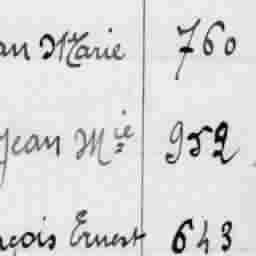 an Marie 760
Jean Mie 952
nçois Ernest 643